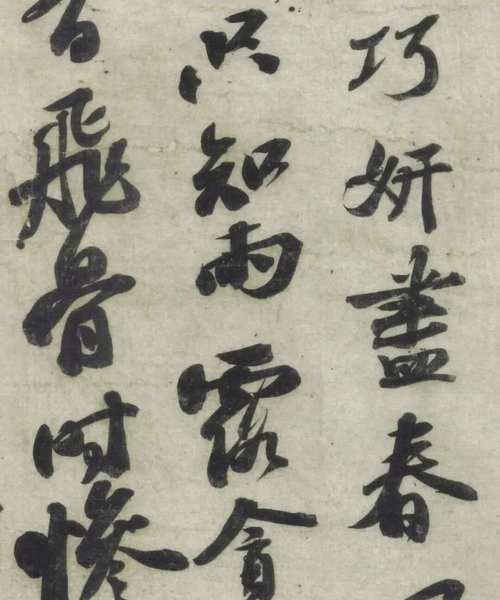 巧妍盡春
只知雨露貪
昔飛骨時慘